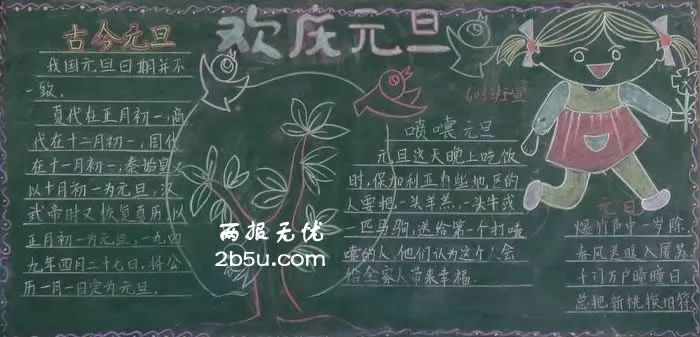 欢庆元旦
古今元旦
我国元旦日期并不
一致。
夏代在正月初一，商
代在十二月初一，周代
在十一月初一，秦始皇又
以十月初一为元旦，汉
武帝时又恢复夏历，以
正月初一为元旦，一九四
九年四月二十七日，将公
历一月一日定为元旦。
两报无忧
2b5u.com
603班宣
喷嚏元旦
元旦这天晚上吃饭
时，保加利亚有些地区的
人要把一头羊羔、一头牛或
一匹马驹，送给第一个打喷
嚏的人，他们认为这个人会
给全家人带来幸福。
元日
爆竹声中一岁除，
春风送暖入屠苏。
千门万户曈曈日，
总把新桃换旧符。